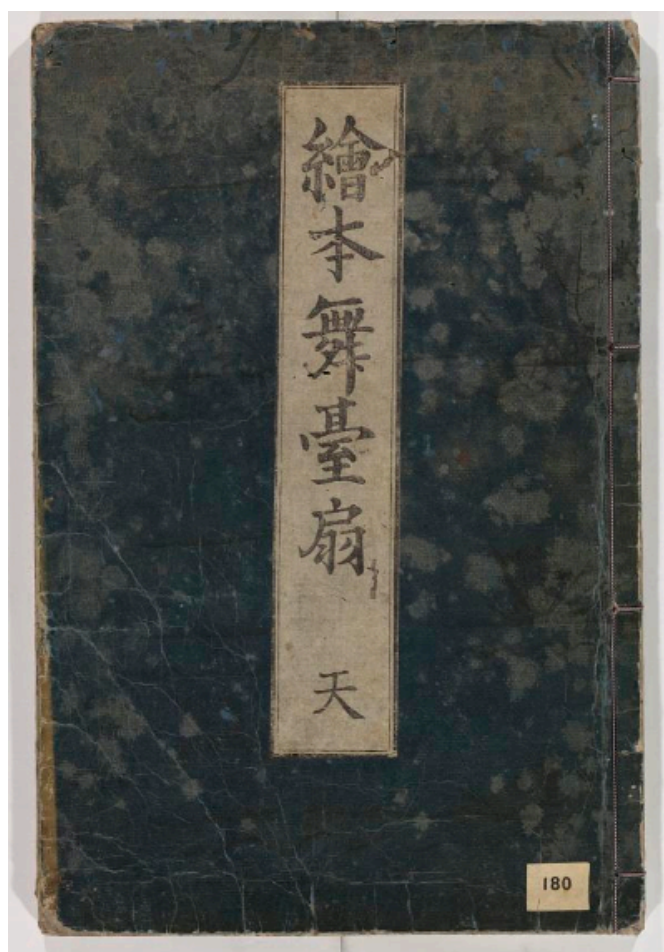 繪本舞臺扇 天
180